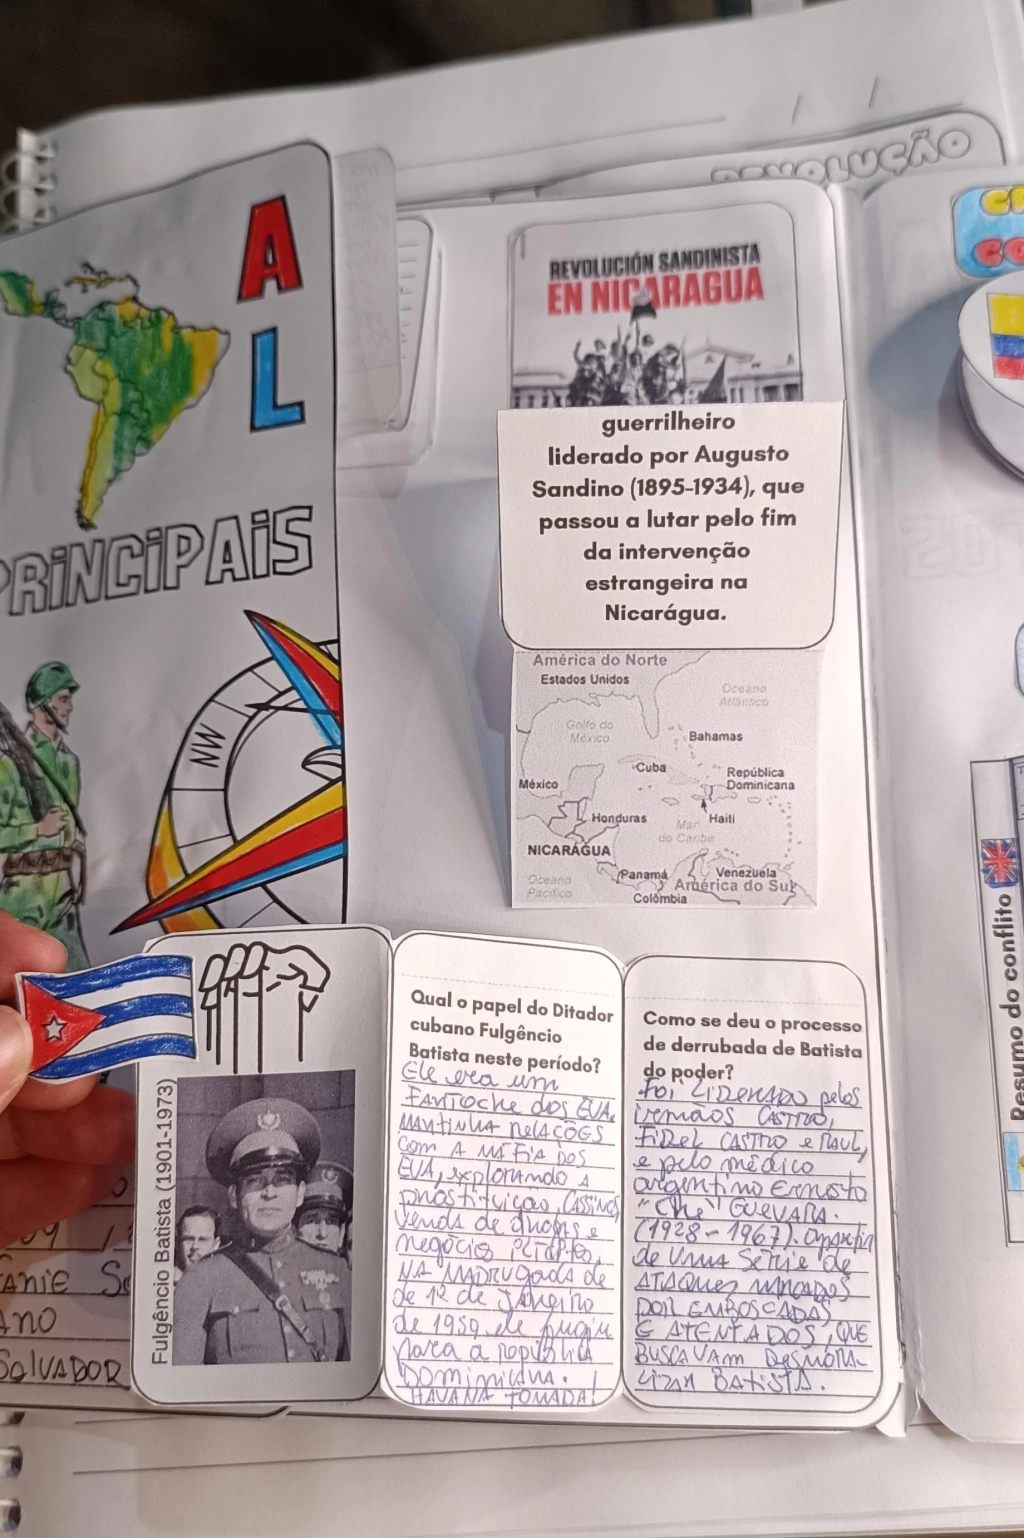 REVOLUÇÃO
A
L
PRINCIPAIS
NW
REVOLUCIÓN SANDINISTA
EN NICARAGUA
guerrilheiro
liderado por Augusto
Sandino (1895-1934), que
passou a lutar pelo fim
da intervenção
estrangeira na
Nicarágua.
América do Norte
Estados Unidos
Oceano
Atlântico
Golfo do
México
Bahamas
Cuba
República
Dominicana
México
Honduras
Haiti
Mar
do Caribe
NICARÁGUA
Panamá
Venezuela
Oceano
Pacífico
América do Sul
Colômbia
Fulgêncio Batista (1901-1973)
Qual o papel do Ditador
cubano Fulgêncio
Batista neste período?
Ele era um
FANTOCHE dos EUA,
MANTINHA RELAÇÕES
COM A MÁFIA DOS
EUA, explorando a
prostituição, CASSINO,
venda de drogas e
negócios
NA MADRUGADA de
de 1º de JANEIRO
de 1959 ele fugiu
para a república
DOMINICANA.
HAVANA TOMADA!
Como se deu o processo
de derrubada de Batista
do poder?
Foi LIDERADO pelos
irmãos CASTRO,
FIDEL CASTRO e RAUL,
e pelo médico
argentino Ernesto
"Che" GUEVARA.
(1928-1967).
de uma Série de
ATAQUES MARCADOS
POR EMBOSCADAS
E ATENTADOS, QUE
BUSCAVAM DESMORA-
LIZAR BATISTA.
ANO
SALVADOR
Resumo do conflito